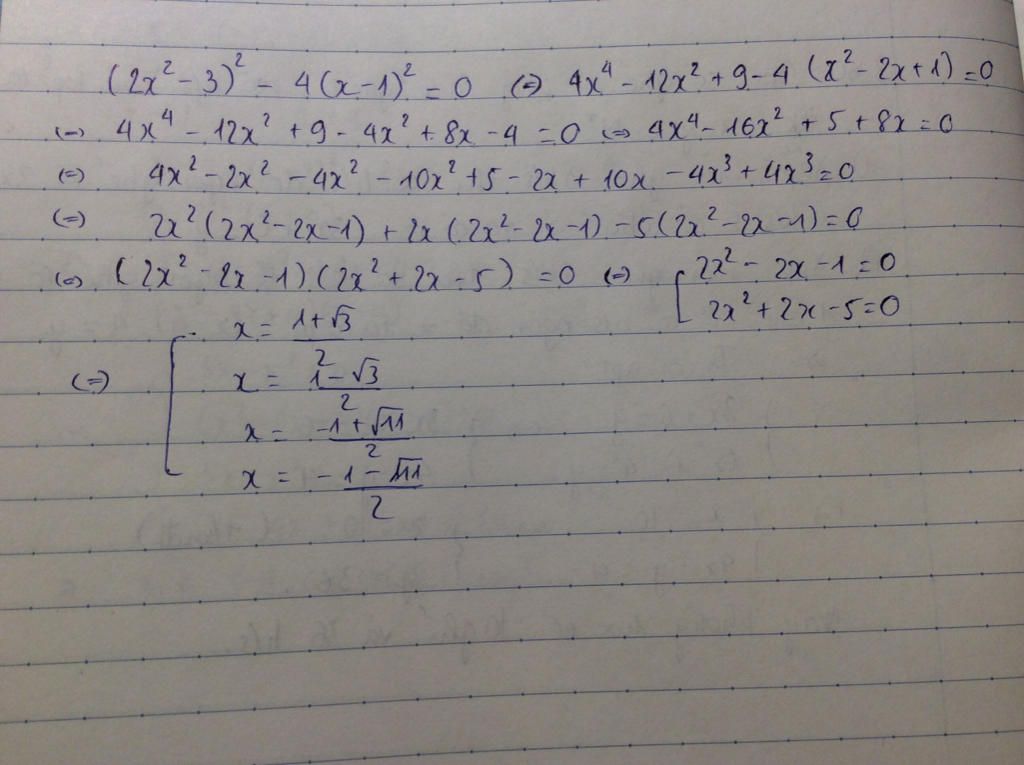 (2x² - 3)² - 4(x-1)² = 0 (=) 4x⁴ - 12x² + 9 - 4 (x² - 2x + 1) = 0
(=) 4x⁴ - 12x² + 9 - 4x² + 8x - 4 = 0 (=) 4x⁴ - 16x² + 5 + 8x = 0
(=) 4x² - 2x² - 4x² - 10x² + 5 - 2x + 10x - 4x³ + 4x³ = 0
(=) 2x² (2x² - 2x - 1) + 2x (2x² - 2x - 1) - 5 (2x² - 2x - 1) = 0
(=) (2x² - 2x - 1) (2x² + 2x - 5) = 0 (=) [ 2x² - 2x - 1 = 0
2x² + 2x - 5 = 0
(=) [ x = (1+√3)/2
x = (1-√3)/2
x = (-1+√11)/2
x = -(1-√11)/2